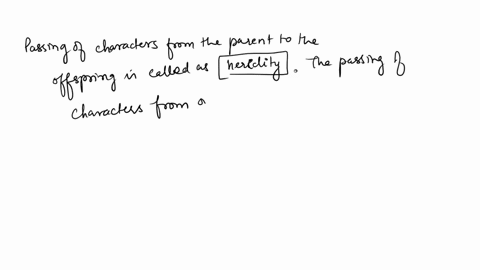 Passing of characters from the parent to the
offspring is called as heridity. The passing of
characters from a